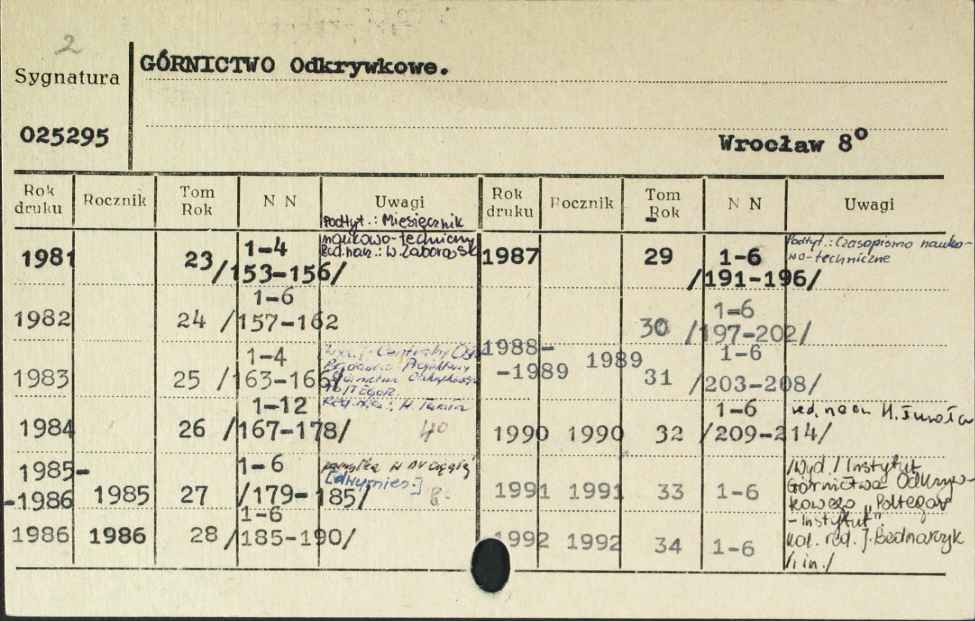 2
Sygnatura
GÓRNICTWO Odkrywkowe.
025295
Wrocław 8°
Rok druku Rocznik Tom Rok N N Uwagi Rok druku Rocznik Tom Rok N N Uwagi
Podtyt.: Miesięcznik
naukowo-techniczny
1981 23 1-4 /153-156/
1987 29 1-6 /191-196/ Podtyt.: Czasopismo nauko-
no-techniczne
1982 24 1-6 /157-162
30 1-6 /197-202/
1983 25 1-4 /163-166/
1988-
-1989 1989 31 1-6 /203-208/
1984 26 1-12 /167-178/ 40
1990 1990 32 1-6 /209-214/ red. nacz. H.
1985-
-1986 1985 27 1-6 /179-185/ [dwumies.] 8.
1991 1991 33 1-6 /Wyd./ Instytut
Górnictwa Odkryw-
kowego "Poltegor
-Instytut"
1986 1986 28 1-6 /185-190/
1992 1992 34 1-6 kol. red. J. Bednarczyk
/i in./